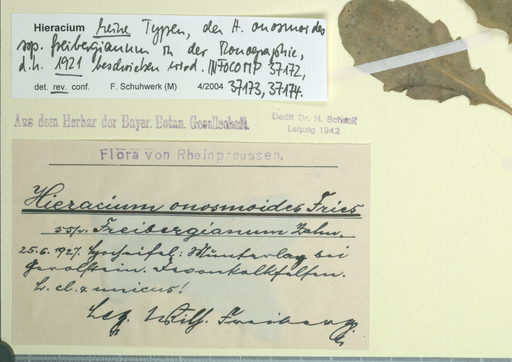 Hieracium keine Typen, da H. onosmoides
ssp. freibergianum in der Monographie,
d.h. 1921 beschrieben wird. INFOCOMP 37172,
det. rev. conf. F. Schuhwerk (M) 4/2004 37173, 37174.
Aus dem Herbar der Bayer. Botan. Gesellschaft.
Dedit Dr. H. Schack
Leipzig 1942
Flora von Rheinpreussen.
Hieracium onosmoides Fries
ssp. Freibergianum Zahn.
25.6.1927. Hocheifel: Munterlay bei
Gerolstein. Devonkalkfelsen.
L. cl. unicus!
Leg. Wilh. Freiberg.